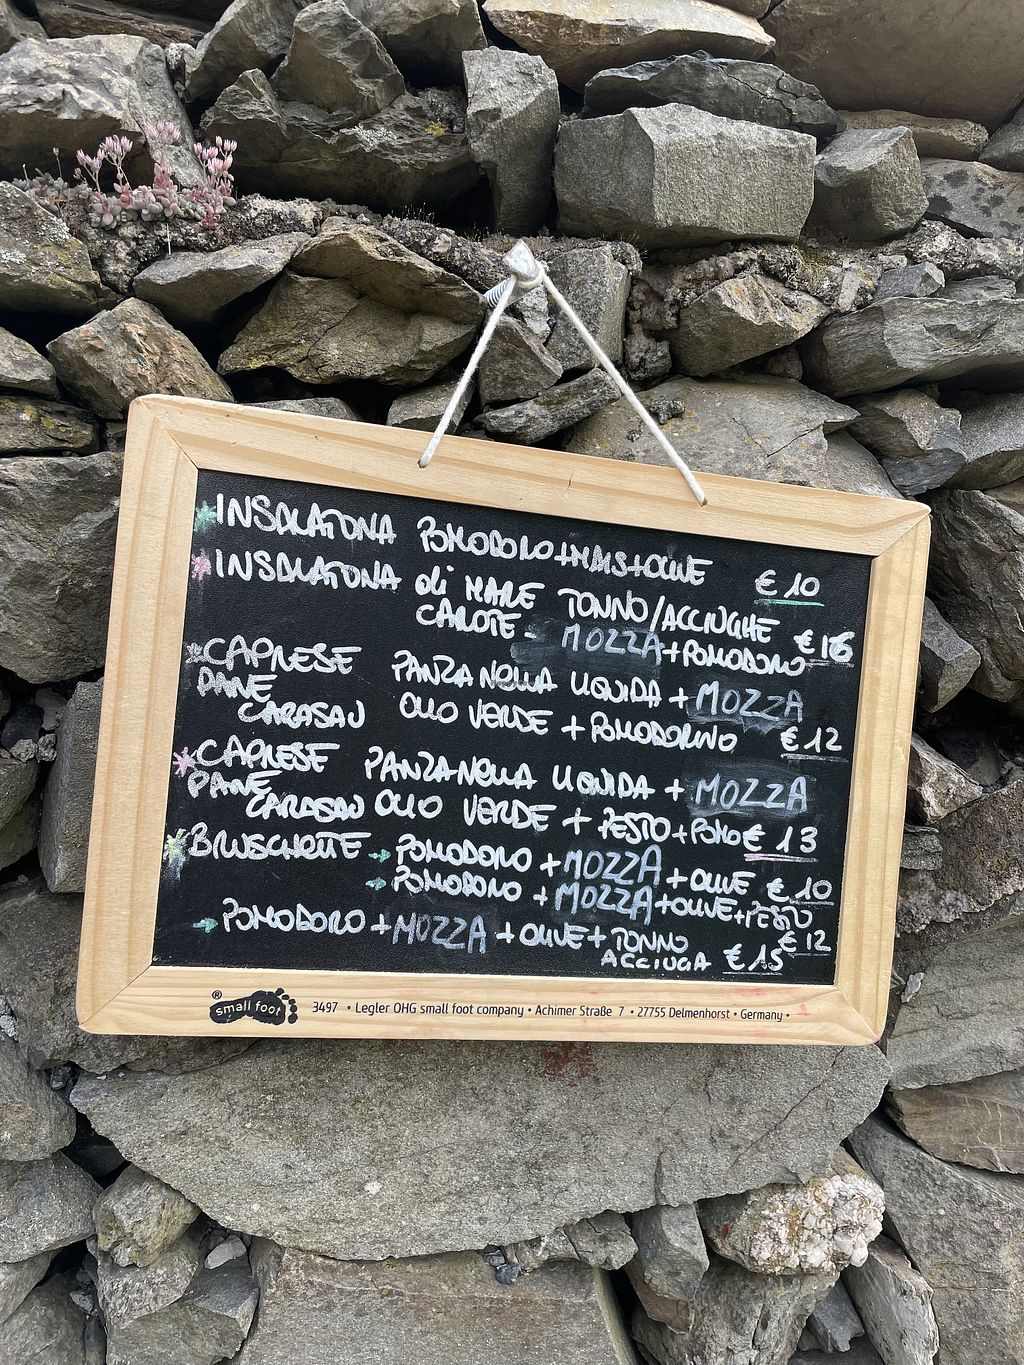 INSALATONA POMODORO+MAIS+OLIVE €10
INSALATONA di MARE TONNO/ACCIUGHE
CAROTE - MOZZA+POMODORO €16
CAPRESE PANZANELLA LIQUIDA + MOZZA
PANE CARASAU OLIO VERDE + POMODORINO €12
CAPRESE PANZANELLA LIQUIDA + MOZZA
PANE CARASAU OLIO VERDE + PESTO+POMO €13
BRUSCHETTE → POMODORO + MOZZA + OLIVE €10
→ POMODORO + MOZZA+OLIVE+PESTO
€12
→ POMODORO + MOZZA + OLIVE + TONNO
ACCIUGA €15
® small foot 3497 • Legler OHG small foot company • Achimer Straße 7 • 27755 Delmenhorst • Germany •